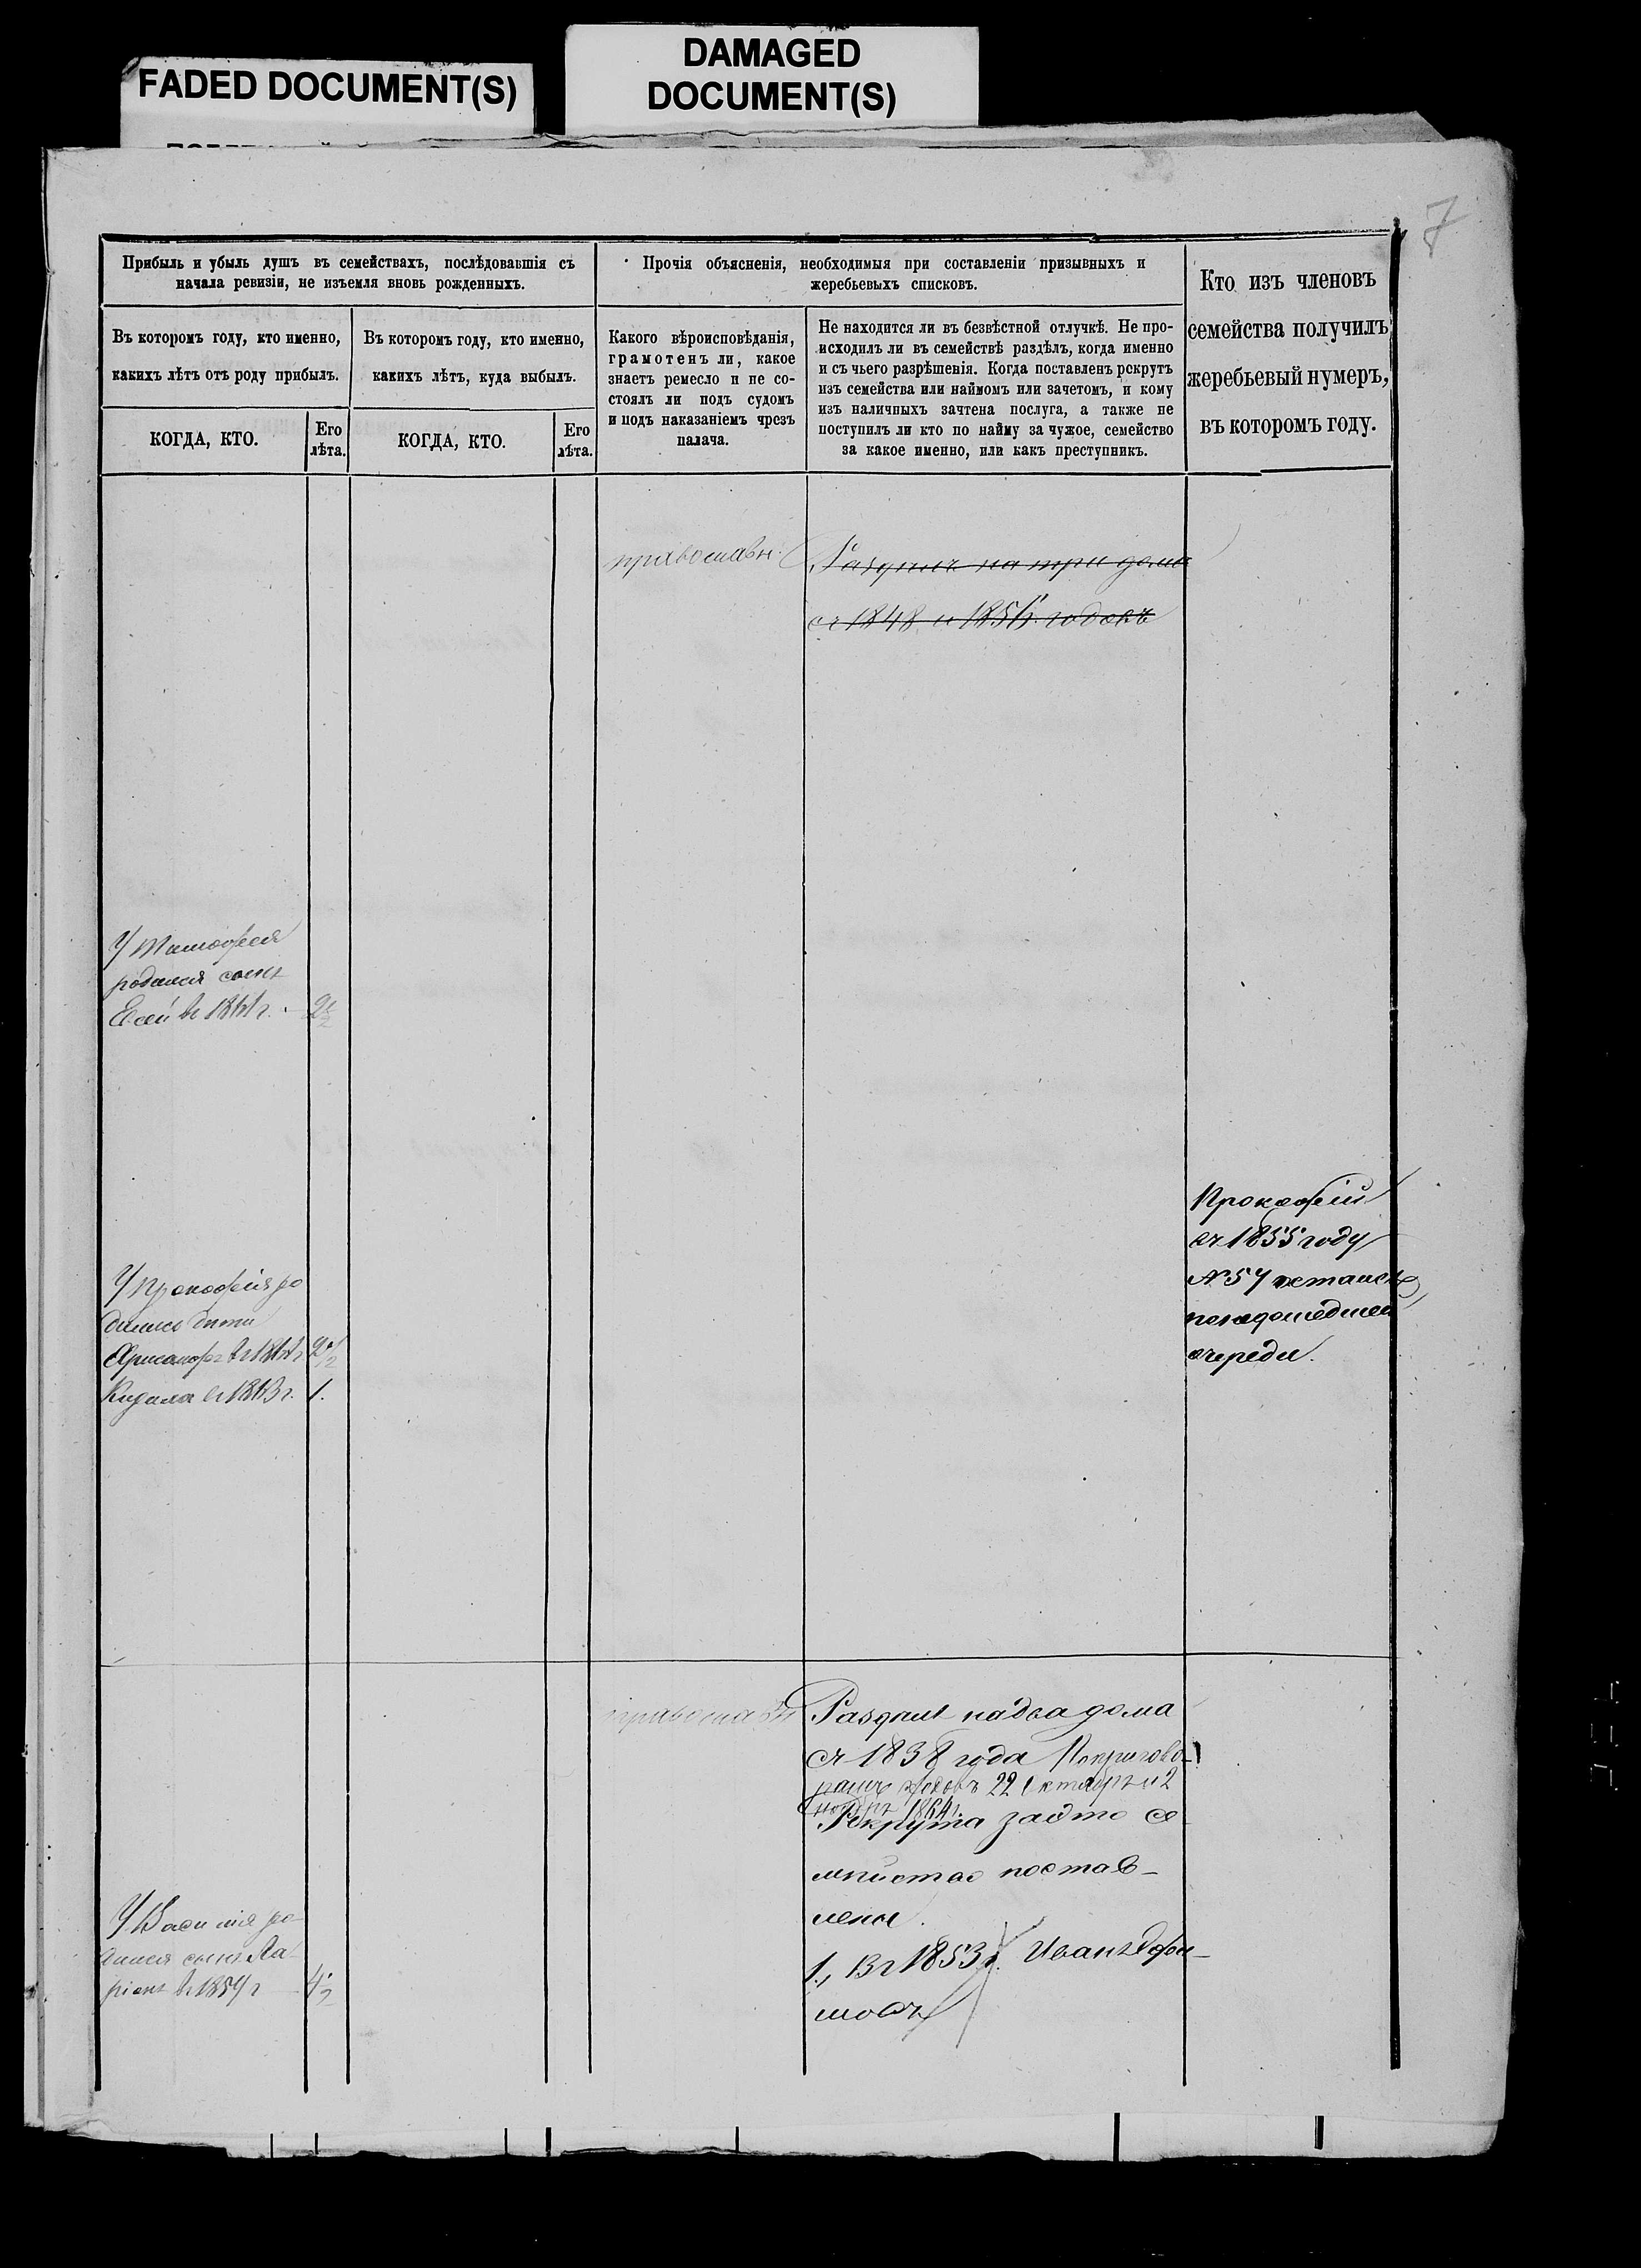 FADED DOCUMENT(S)
DAMAGED
DOCUMENT(S)
7
Прибыль и убыль душъ въ семействахъ, послѣдовавшія съ
начала ревизіи, не изъемля вновь рожденныхъ.
Прочія объясненія, необходимыя при составленіи призывныхъ и
жеребьевыхъ списковъ.
Кто изъ членовъ
семейства получилъ
жеребьевый нумеръ,
въ которомъ году.
Въ которомъ году, кто именно,
какихъ лѣтъ отъ роду прибылъ.
Въ которомъ году, кто именно,
какихъ лѣтъ, куда выбылъ.
Какого вѣроисповѣданія,
грамотенъ ли, какое
знаетъ ремесло и не со-
стоялъ ли подъ судомъ
и подъ наказаніемъ чрезъ
палача.
Не находится ли въ безвѣстной отлучкѣ. Не про-
исходилъ ли въ семействѣ раздѣлъ, когда именно
и съ чьего разрѣшенія. Когда поставленъ рекрутъ
изъ семейства или наймомъ или зачетомъ, и кому
изъ наличныхъ зачтена послуга, а также не
поступилъ ли кто по найму за чужое, семейство
за какое именно, или какъ преступникъ.
КОГДА, КТО.
Его
лѣта.
КОГДА, КТО.
Его
лѣта.
православн.
Раздѣлъ на три дома
съ 1848 и 1856 годовъ
У Тимофея
родился сынъ
въ 1861 г.
Прокофій
въ 1855 году
№ 57 остался
по недошедшей
очереди.
У Прокофія ро
дились дѣти
1.
православн
Раздѣлъ на два дома
съ 1838 года По пригово-
рамъ 22 Октября и 2
ноября 1864 г.
Рекрута за это се
мѣйство постав-
лены.
1., Въ 1853 г. Иванъ Ефи-
мовъ
У Василія ро-
дился сынъ Ла-
ріонъ въ 1859 г